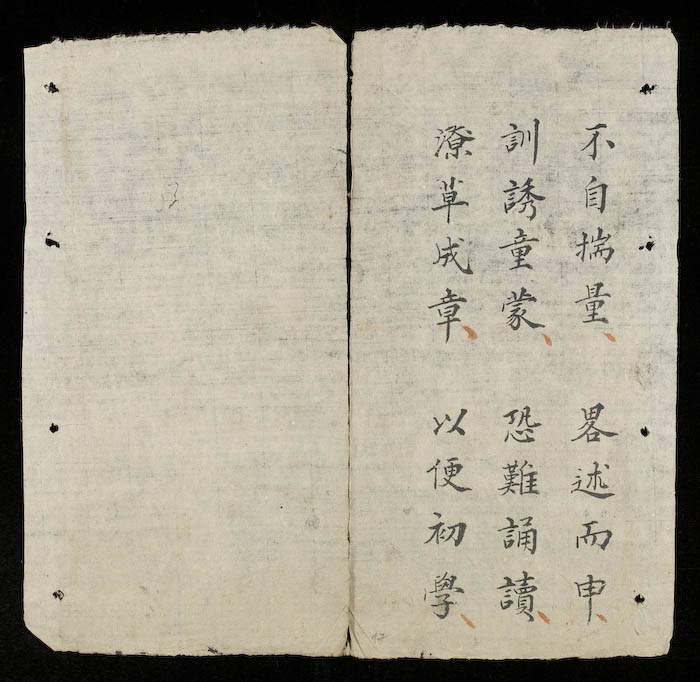 不自揣量、畧述而申、
訓誘童蒙、恐難誦讀、
潦草成章、以便初學、